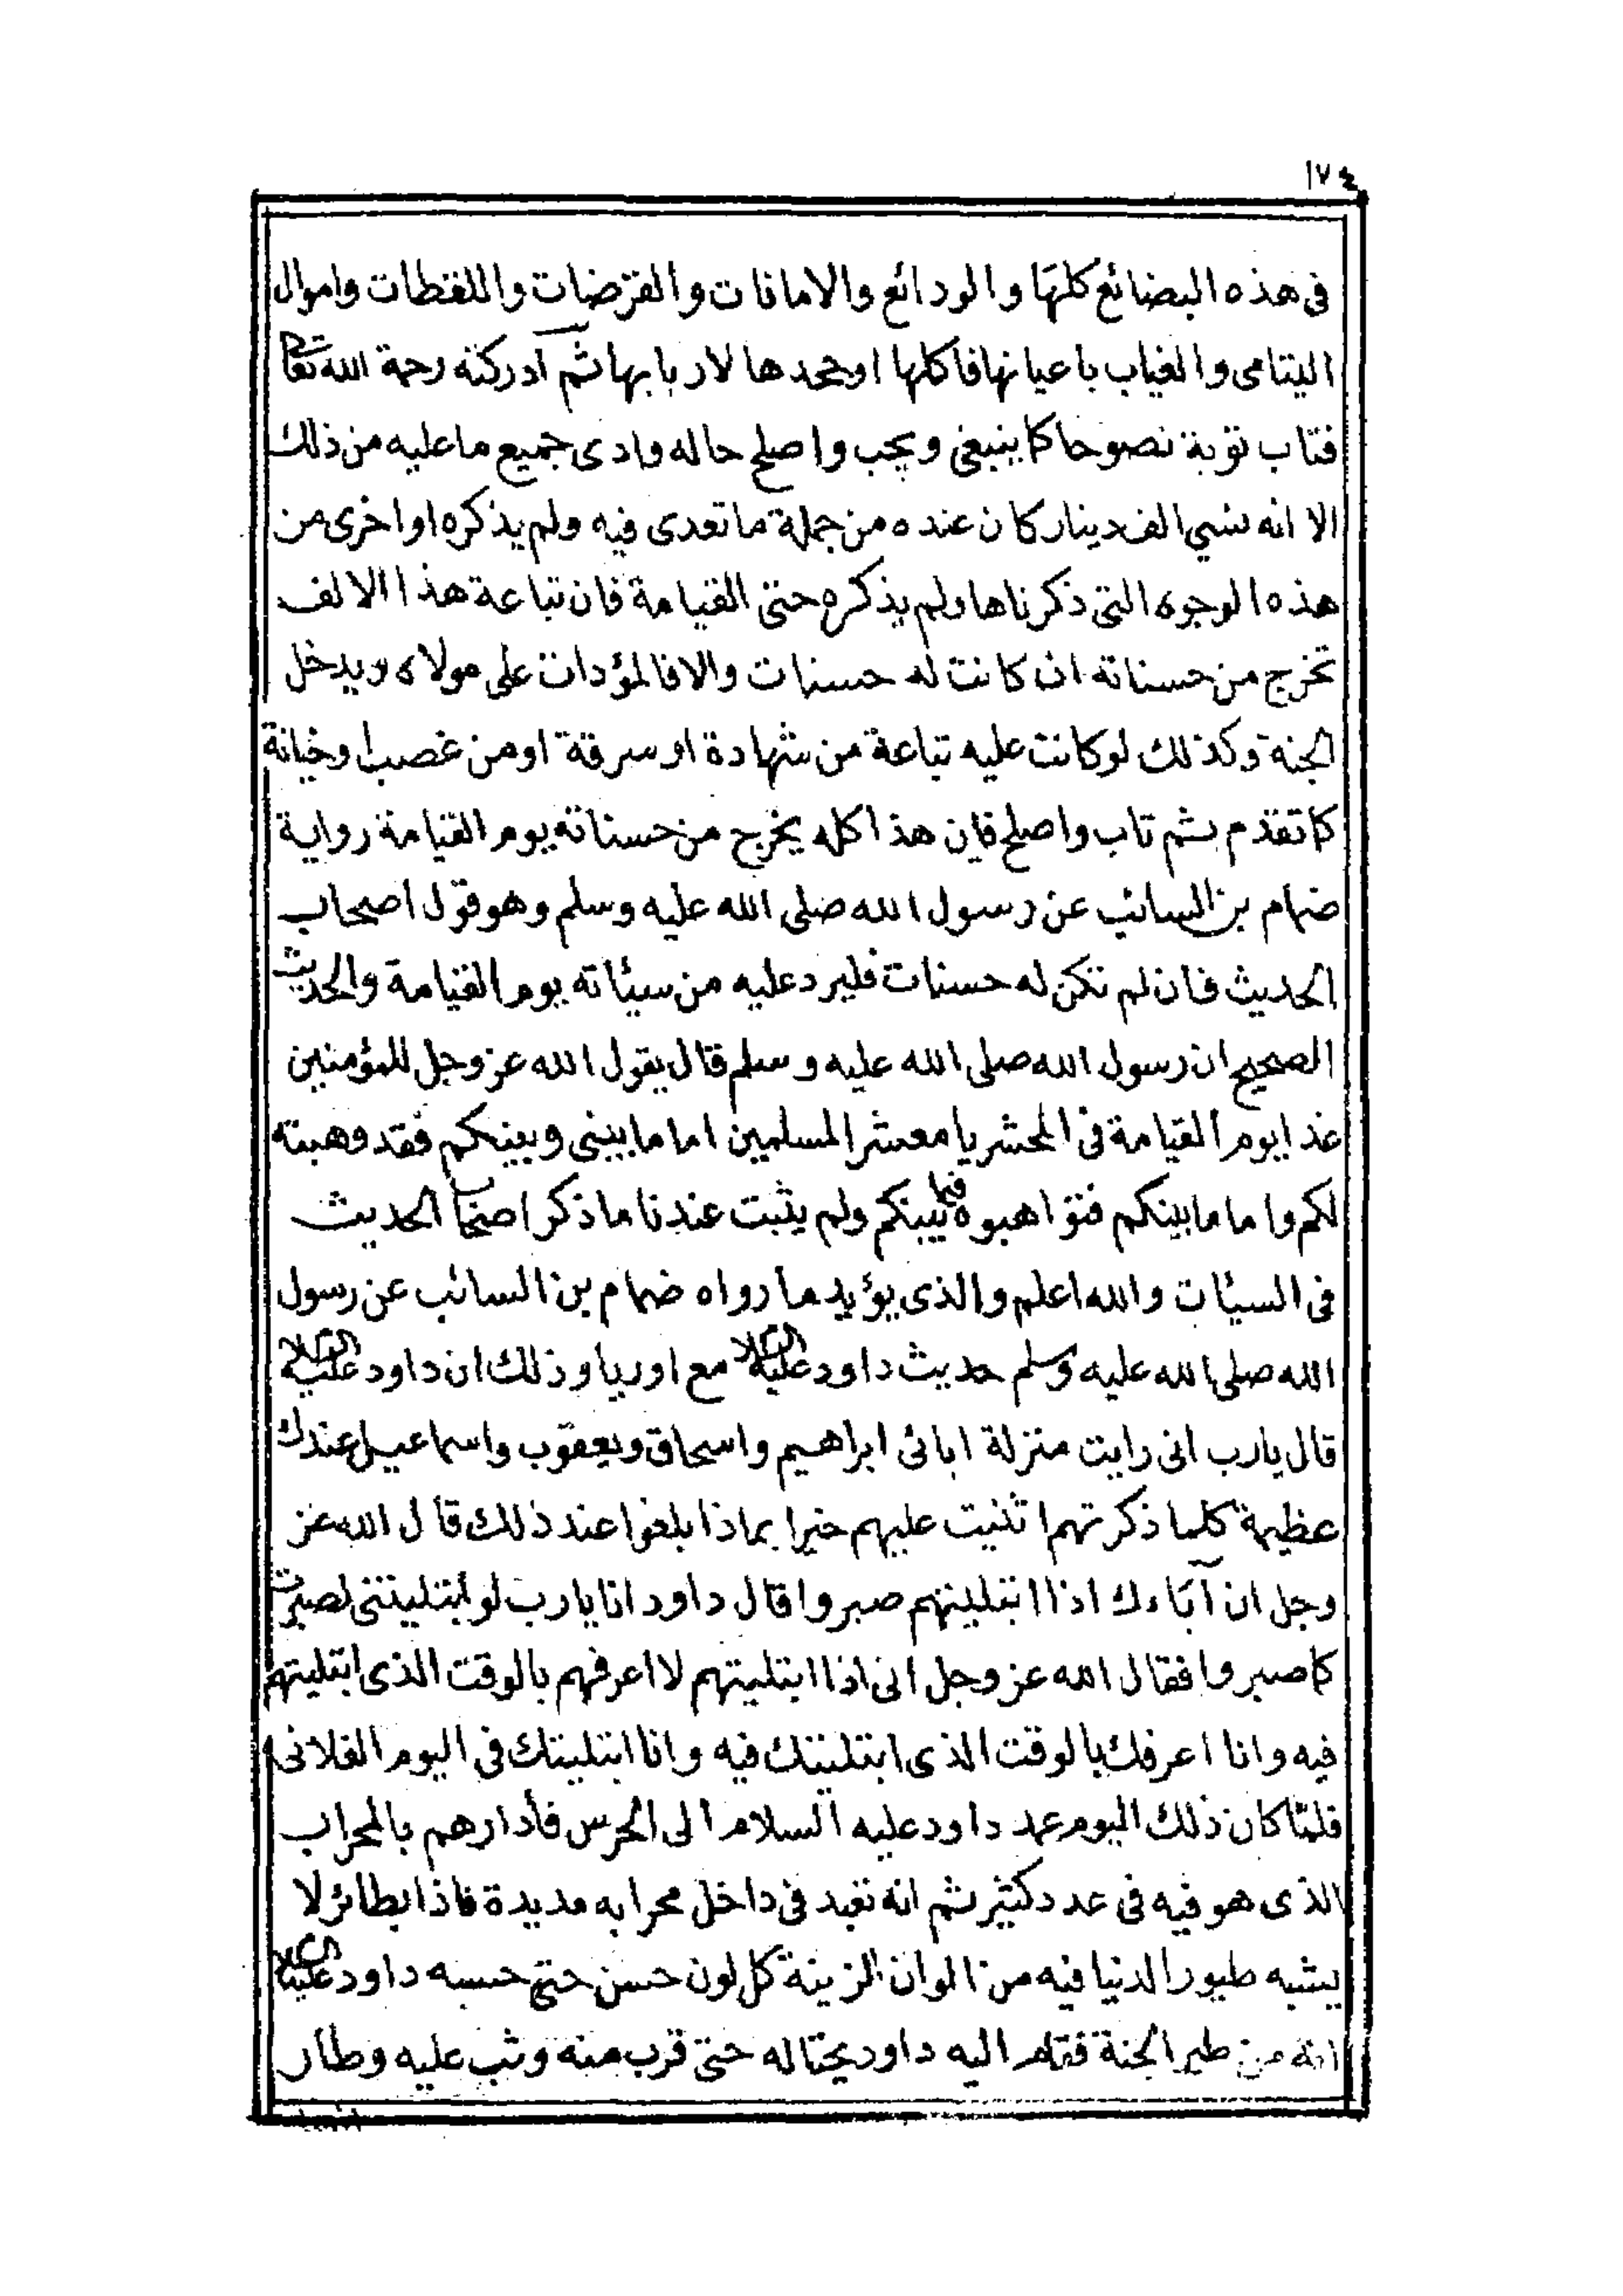 ١٧٤
في هذه البضائع كلها والودائع والامانات والقرضات واللقطات واموال
اليتامى والغياب باعيانها فاكلها او جحدها لاربابها ثم أدركته رحمة الله تعا
فتاب توبة نصوحا كما ينبغي ويجب واصلح حاله وادى جميع ما عليه من ذلك
الا انه نسي الف دينار كان عنده من جملة ما تعدى فيه ولم يذكره او اخرى من
هذه الوجوه التي ذكرناها ولم يذكره حتى القيامة فان تباعة هذا الالف
تخرج من حسناته ان كانت له حسنات والا فالمؤدات على مولاه ويدخل
الجنة وكذلك لو كانت عليه تباعة من شهادة او سرقة او من غصب او خيانة
كما تقدم ثم تاب واصلح فان هذا كله يخرج من حسناته يوم القيامة رواية
ضمام بن السائب عن رسول الله صلى الله عليه وسلم وهو قول اصحاب
الحديث فان لم تكن له حسنات فليرد عليه من سيئاته يوم القيامة والحديث
الصحيح ان رسول الله صلى الله عليه وسلم قال يقول الله عز وجل للمؤمنين
غدا يوم القيامة في المحشر يا معشر المسلمين اما ما بيني وبينكم فقد وهبته
لكم واما ما بينكم فتواهبوه فيما بينكم ولم يثبت عندنا ما ذكر اصحاب الحديث
في السيئات والله اعلم والذي يؤيد ما رواه ضمام بن السائب عن رسول
الله صلى الله عليه وسلم حديث داود عليه السلام مع اوريا وذلك ان داود عليه السلام
قال يارب انى رايت منزلة ابائى ابراهيم واسحاق ويعقوب واسماعيل عندك
عظيمة كلما ذكرتهم اثنيت عليهم خيرا بماذا بلغوا عند ذلك قال الله عز
وجل ان آباءك اذا ابتليتهم صبروا قال داود انا يارب لو ابتليتنى لصبرت
كما صبروا فقال الله عز وجل انى اذا ابتليتهم لا اعرفهم بالوقت الذى ابتليتهم
فيه وانا اعرفك بالوقت الذى ابتليتك فيه وانا ابتليتك في اليوم الفلانى
فلما كان ذلك اليوم عمد داود عليه السلام الى الحرس فأدارهم بالمحراب
الذى هو فيه في عدد كثير ثم انه تعبد في داخل محرابه مديدة فاذا بطائر لا
يشبه طيور الدنيا فيه من الوان الزينة كل لون حسن حتى حسبه داود عليه السلام
انه من طير الجنة فقام اليه داود يحتاله حتى قرب منه وثب عليه وطار